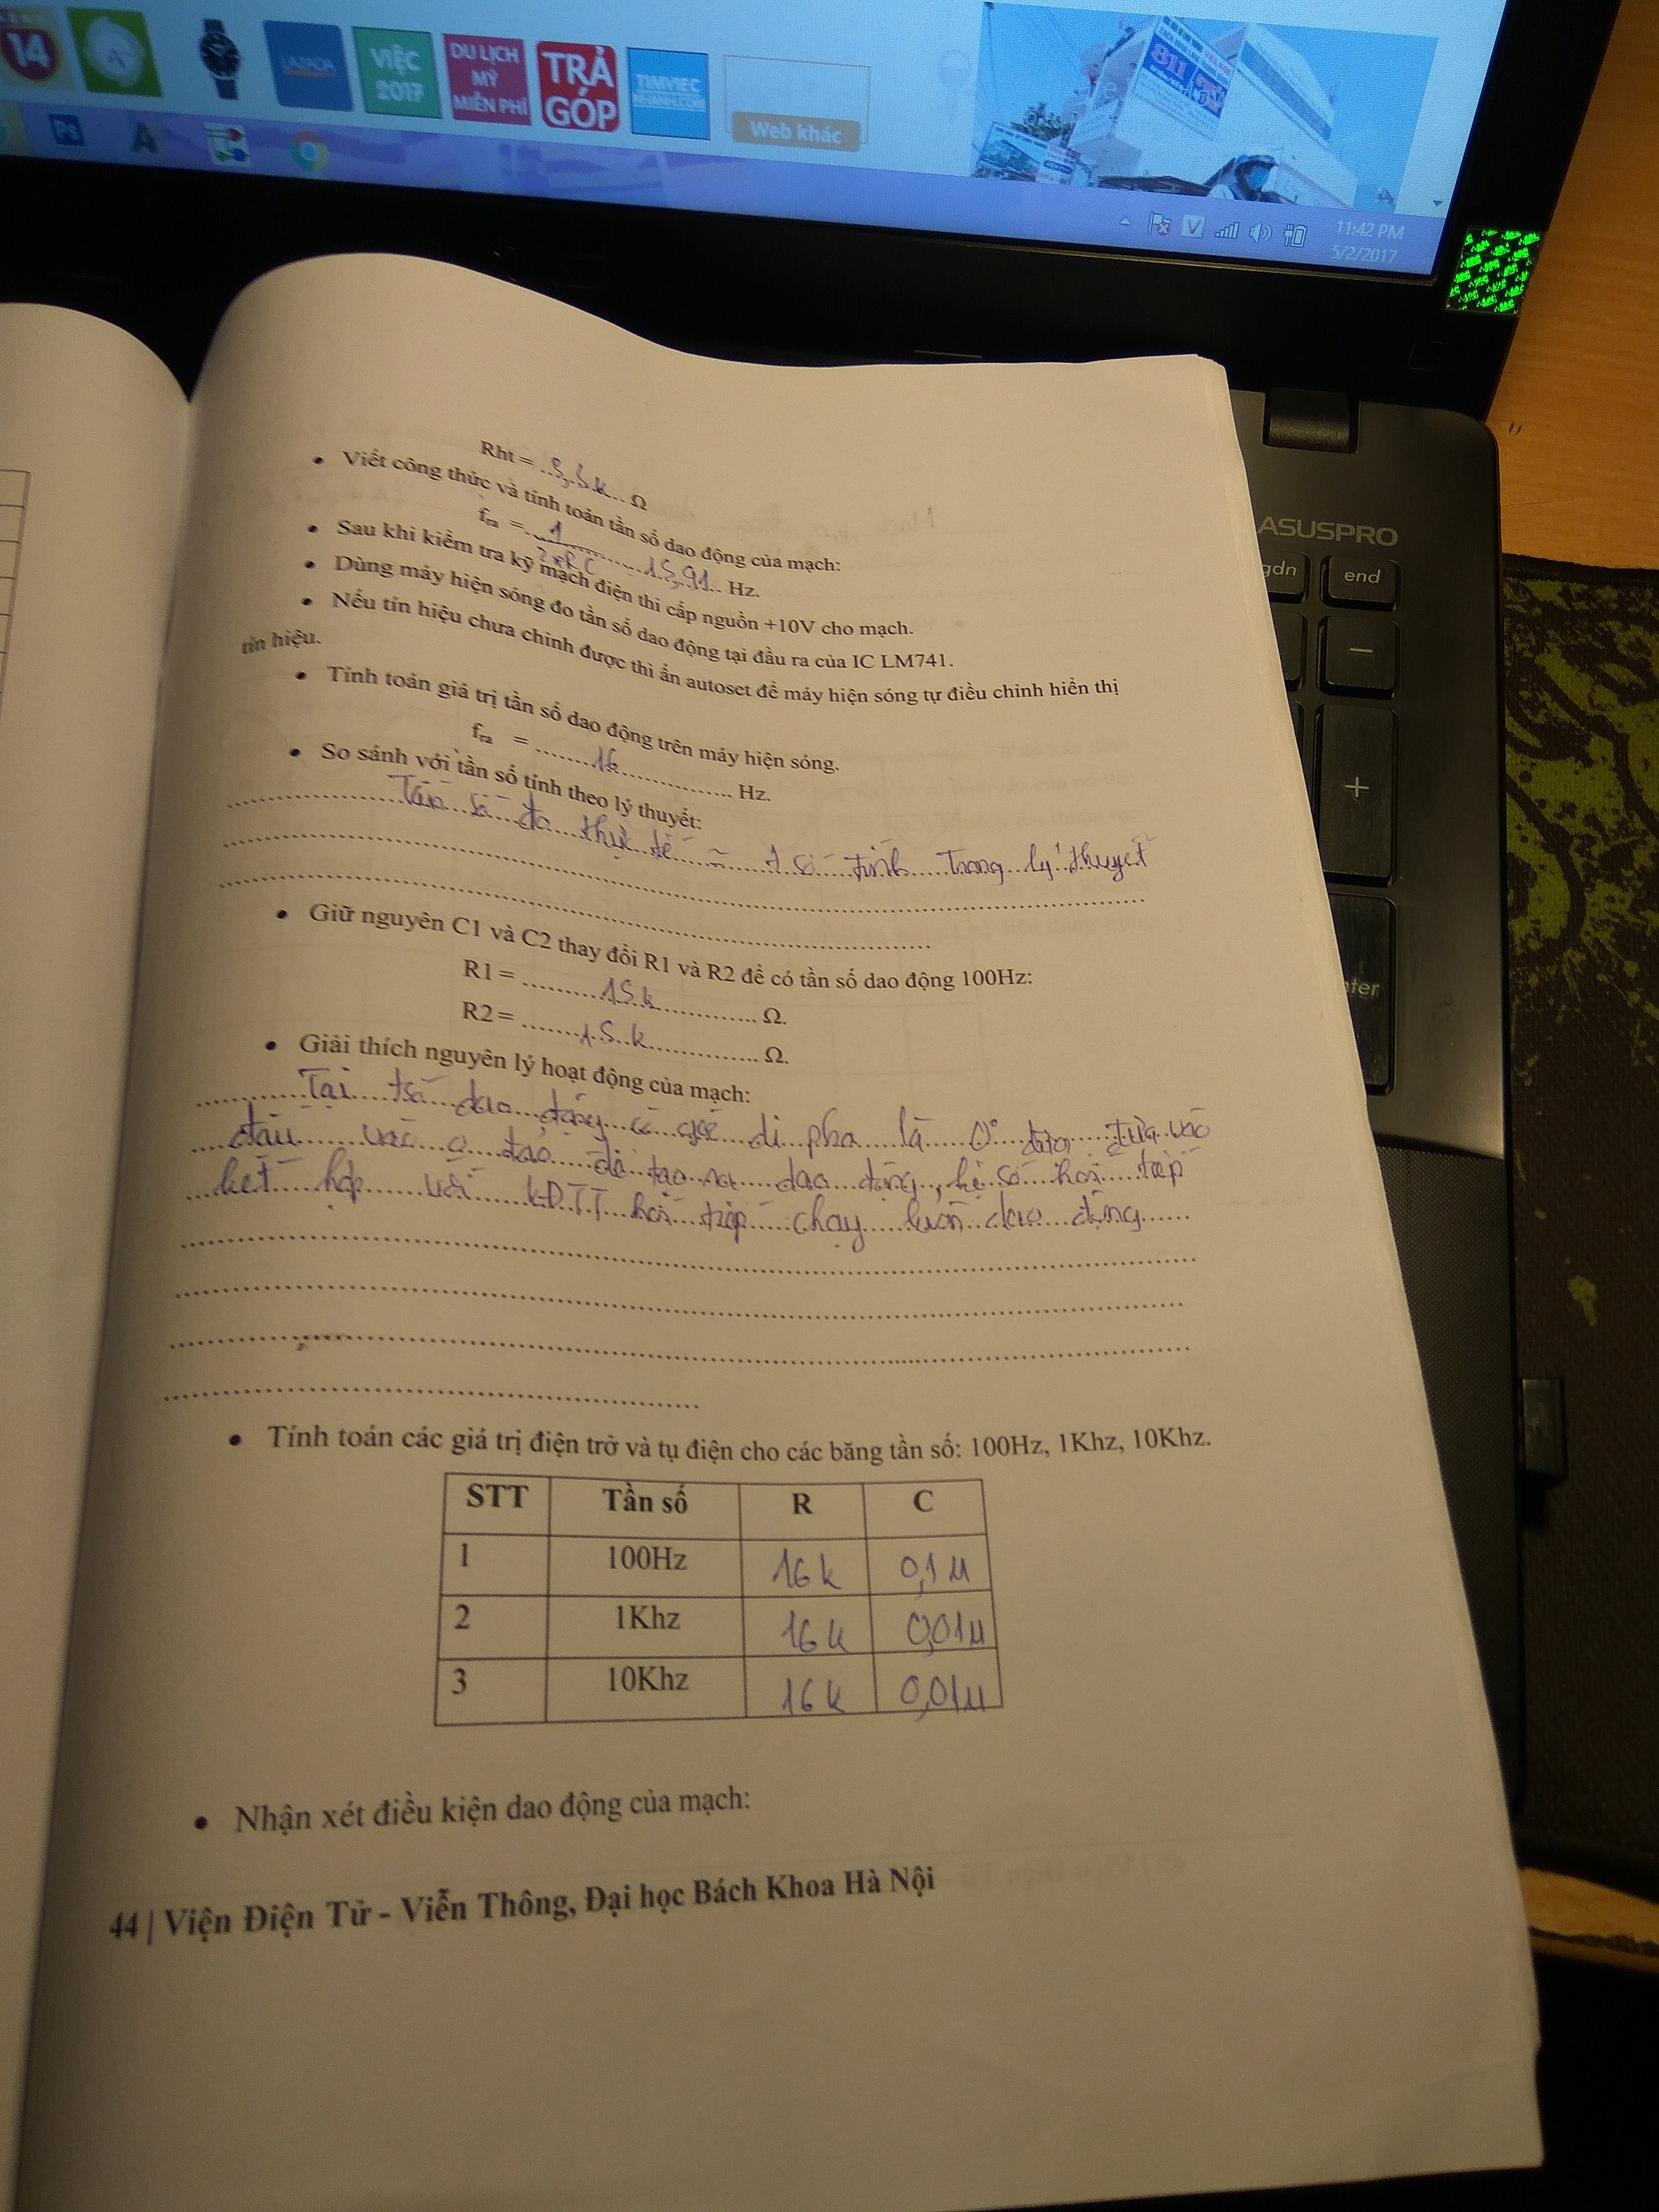 14
LAZADA
VIỆC
2017
DU LỊCH
MỸ
MIỄN PHÍ
TRẢ
GÓP
TIMVIEC
NHANH.COM
Web khác
811
Ps
V
11:42 PM
5/2/2017
ASUSPRO
end
enter
Rht = Ω
• Viết công thức và tính toán tần số dao động của mạch:
fra = 1 / 2πRC 15,91 Hz.
• Sau khi kiểm tra kỹ mạch điện thì cấp nguồn +10V cho mạch.
• Dùng máy hiện sóng đo tần số dao động tại đầu ra của IC LM741.
• Nếu tín hiệu chưa chỉnh được thì ấn autoset để máy hiện sóng tự điều chỉnh hiển thị
tín hiệu.
• Tính toán giá trị tần số dao động trên máy hiện sóng.
fra = 16 Hz.
• So sánh với tần số tính theo lý thuyết:
Tần số đo thực tế ≈ t số tính trong lý thuyết
• Giữ nguyên C1 và C2 thay đổi R1 và R2 để có tần số dao động 100Hz:
R1 = 15k Ω.
R2 = 1.5.k Ω.
• Giải thích nguyên lý hoạt động của mạch:
Tại tsố dao động có góc di pha là 0° được đưa vào
đầu vào đảo để tạo ra dao động, hệ số hồi tiếp
kết hợp với KĐTT hồi tiếp chạy luôn dao động
• Tính toán các giá trị điện trở và tụ điện cho các băng tần số: 100Hz, 1Khz, 10Khz.
STT Tần số R C
1 100Hz 16k 0,1µ
2 1Khz 16k 0,01µ
3 10Khz 16k 0,01µ
• Nhận xét điều kiện dao động của mạch:
44 | Viện Điện Tử - Viễn Thông, Đại học Bách Khoa Hà Nội